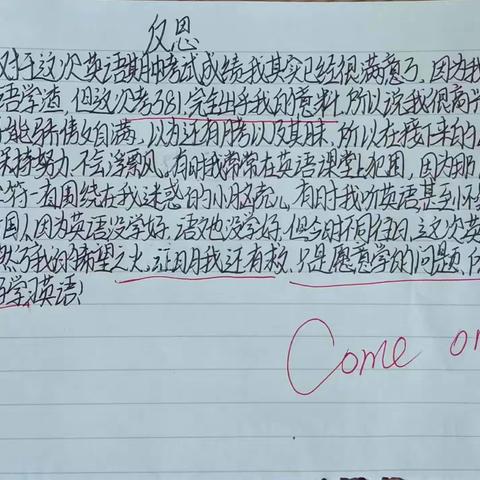 反思
对于这次英语期中考试成绩我其实已经很满意了,因为我
语学渣,但这次考了81,完全出乎我的意料,所以说我很高兴
能骄傲自满,以为还有月考以及期末,所以在接下来的
保持努力,不会浮飘风。有时我常常在英语课堂上犯困,因为那
符一直围绕在我迷惑的小脑壳儿,有时我听英语,甚至怀疑
国人,因为英语没学好,语文也没学好,但今时不同往日,这次英
燃了我的希望之火,证明我还有救,只是愿意学的问题,
学习英语!
Come on